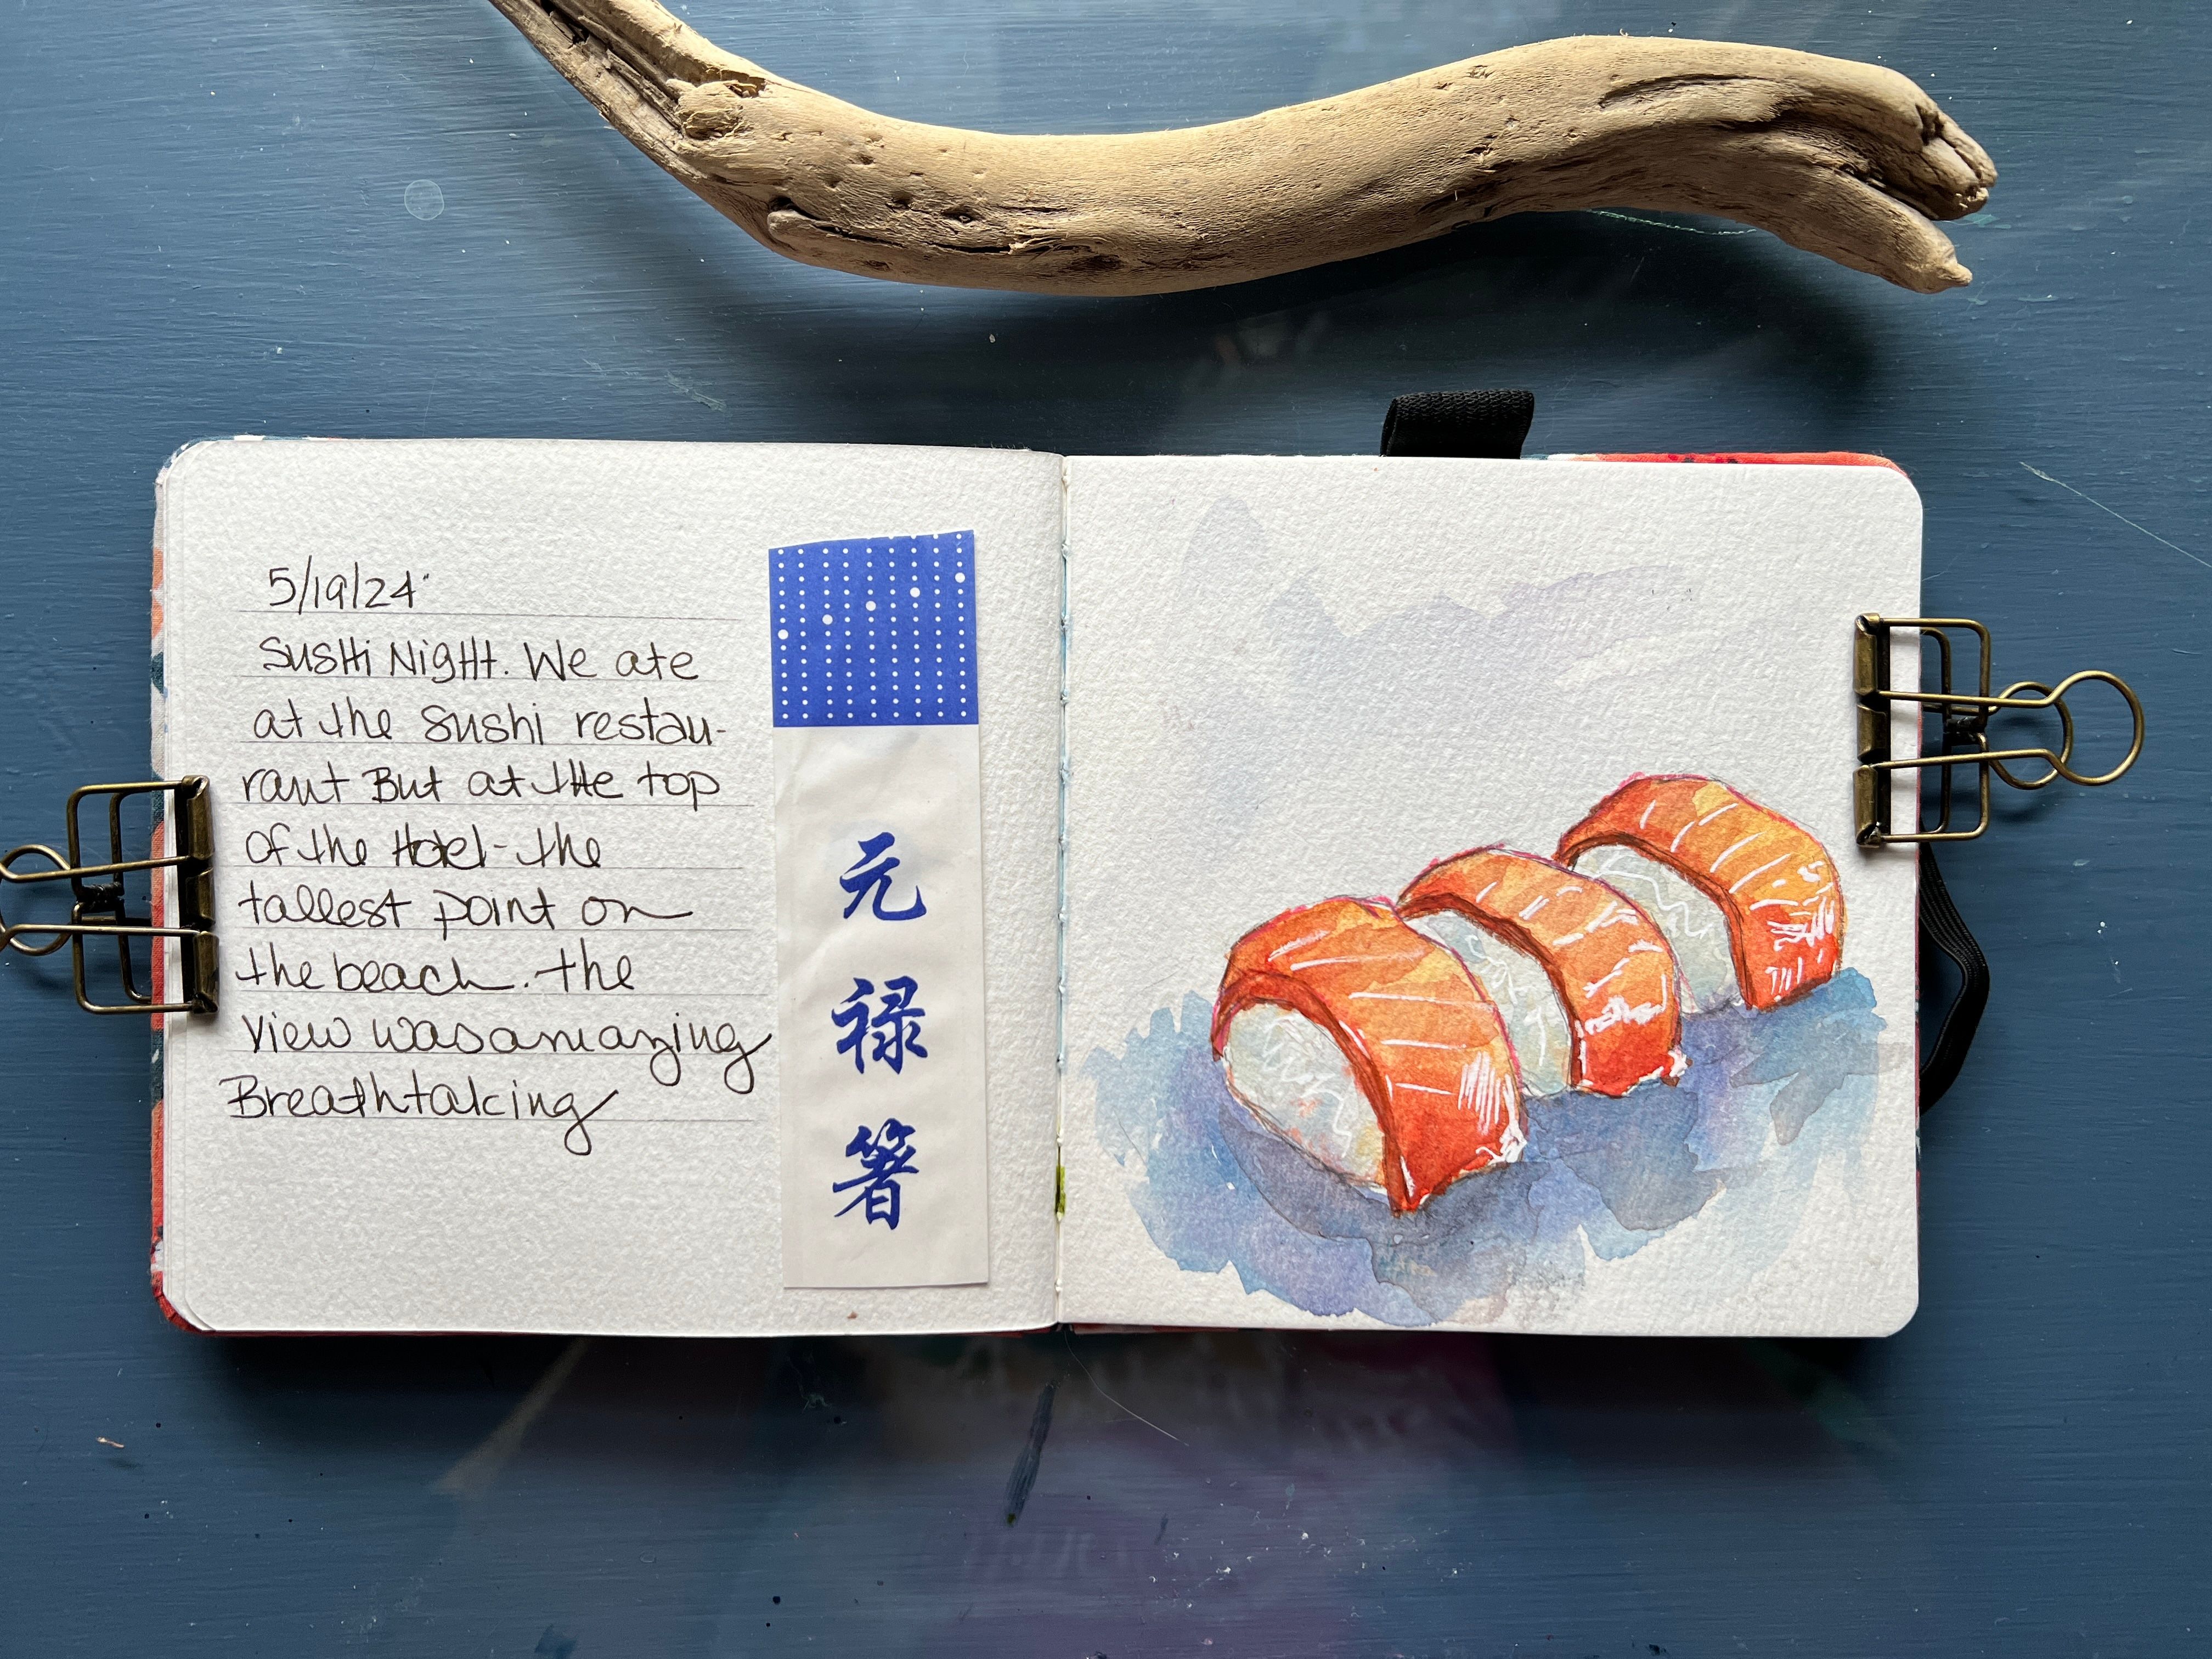 5/19/24
SusHi NigHt. We ate
at the sushi restau-
rant But at tHe top
of the Hotel- the
tallest point on
the beach. the
view was amazing
Breathtaking
元
禄
箸